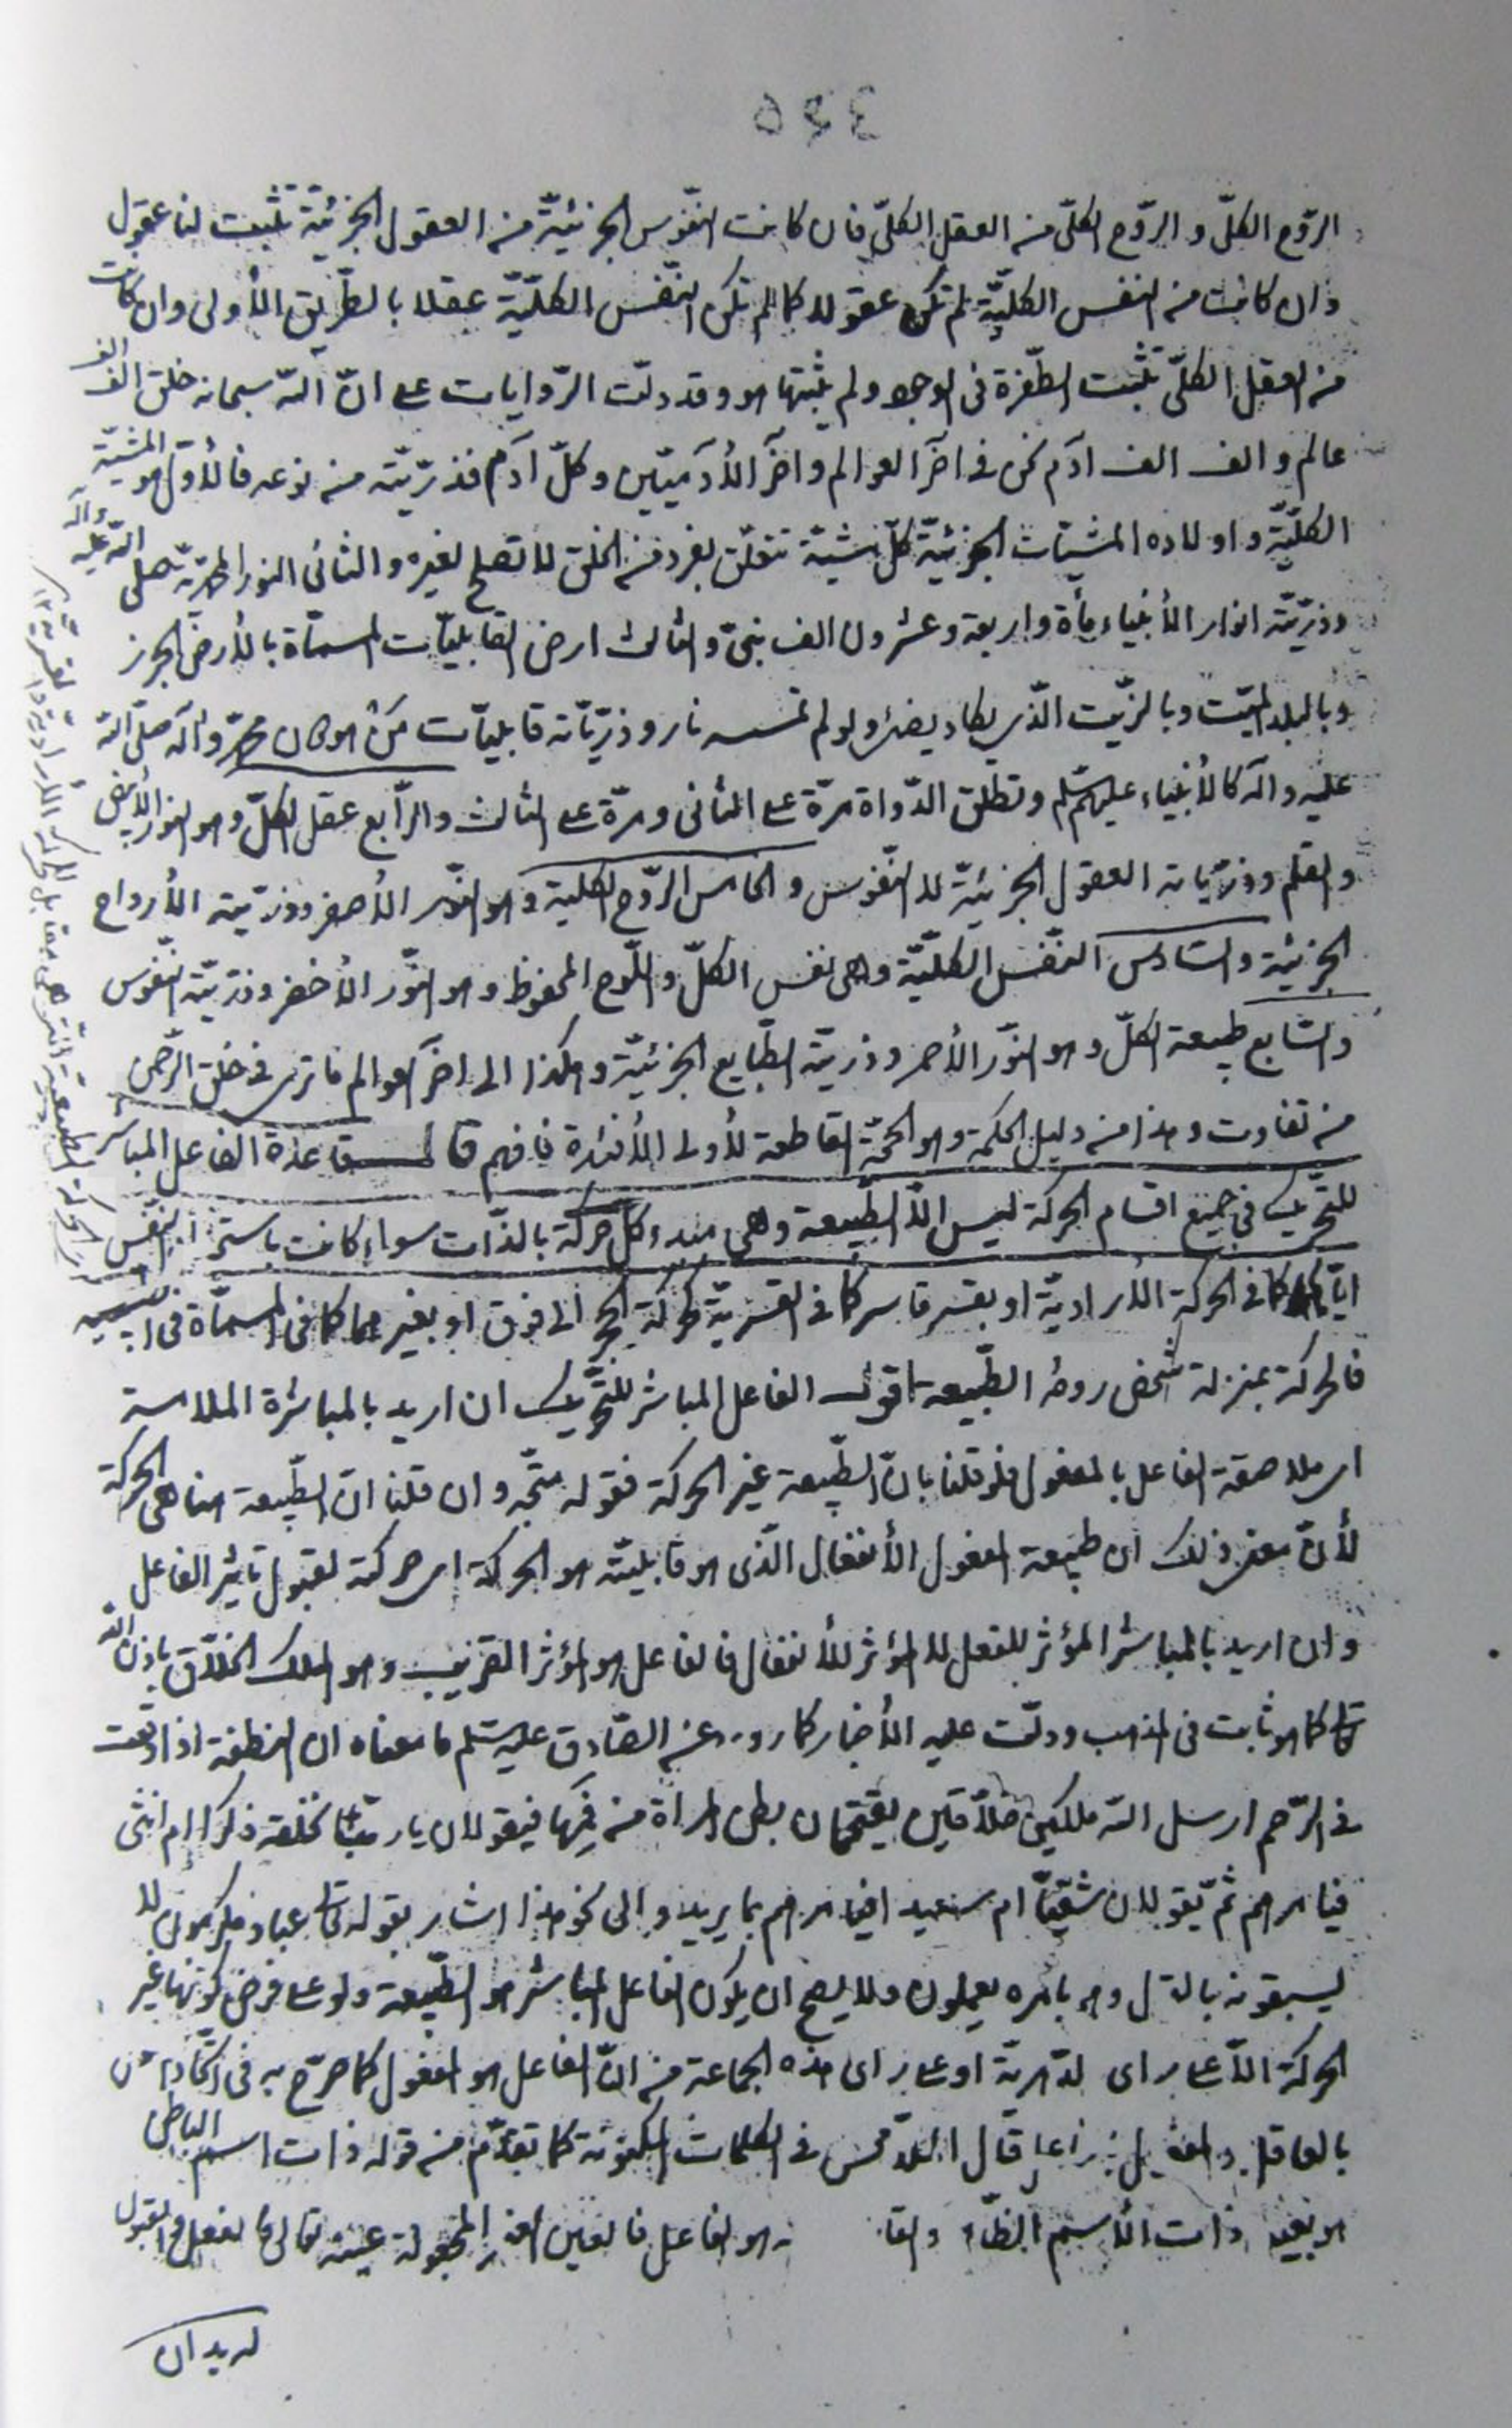 ٥٤٤
الرّوح الكلّ و الرّوح الكلّى من العقل الكلّى فان كانت النّفوس الجزئيّة من العقول الجزئيّة تثبت لنا عقول
وان كانت من النفس الكليّة لم تكن عقولا كما لم تكن النّفس الكلّيّة عقلا بالطّريق الأولى وان كانت
من العقل الكلّى تثبت الطّفرة فى الوجود ولم يثبتها هو وقد دلّت الرّوايات على انّ اللّه سبحانه خلق الف الف
عالم و الف الف ادم نحن فى اخر العوالم و اخر الأدميّين و كلّ ادم فذرّيّته من نوعه فالأول هو المشيّة
الكلّيّة و اولاده المشيّات الجزئيّة كلّ مشيّة تتعلّق بفرد من الخلق لا تصلح لغيره و الثانى النور المحمديّة صلى اللّه عليه وآله
و ذرّيّته انوار الأنبياء مأة و اربعة و عشرون الف نبىّ و الثالث ارض القابليّات المسمّاة بالأرض الجرز
و بالبلد الميّت و بالزّيت الّذى يكاد يضئ ولو لم تمسسه نار و ذرّيّاته قابليّات من هو دون محمّد و اله صلّى اللّه
عليه و اله كالأنبياء عليهم السّلم و تطلق الدّواة مرّة على الثانى و مرّة على الثالث و الرّابع عقل الكلّ و هو النور الأبيض
و القلم و ذرّيّاته العقول الجزئيّة لا النّفوس و الخامس الرّوح الكلية و هو النّور الأصفر و ذرّيّته الأرواح
الجزئية و السّادس النّفس الكلّيّة و هى نفس الكلّ و اللّوح المحفوظ و هو النّور الأخضر و ذرّيّته النّفوس
و السّابع طبيعة الكلّ و هو النّور الأحمر و ذرّيّته الطّبايع الجزئيّة و هكذا الى اخر العوالم ما ترى فى خلق الرّحمن
من تفاوت و هذا من دليل الحكمة و هو الحجّة القاطعة لأولى الأفئدة فافهم قال قاعدة الفاعل المباشر
للتّحريك فى جميع اقسام الحركة ليس الّا الطّبيعة و هى مبدء كلّ حركة بالذّات سواء كانت باستخدام النّفس
ايّاها كما فى الحركة الأراديّة او بقسر قاسر كما فى القسريّة كحركة الحجر الى فوق او بغيرهما كما فى المسمّاة
فالحركة بمنزلة شخص روحه الطّبيعة اقول الفاعل المباشر للتّحريك ان اريد بالمباشرة الملامسة
اى ملاصقة الفاعل بالمفعول فلو قلنا بانّ الطّبيعة غير الحركة فقوله متّجه و ان قلنا انّ الطّبيعة هنا هى الحركة
لأنّ معنى ذلك ان طبيعة المفعول الأنفعال الّذى هو قابليّته هو الحركة اى حركته لقبول تأثير الفاعل
و ان اريد بالمباشر المؤثر للفعل لا المؤثر للأنفعال فالفاعل هو المؤثر القريب و هو الملك الخلّاق باذن اللّه
تعالى كما هو ثابت فى المذهب و دلّت عليه الأخبار كما روى عن الصّادق عليه السّلم ما معناه ان النطفة اذا وقعت
فى الرّحم ارسل اللّه ملكين خلّاقين يقتحمان بطن المرأة من فمها فيقولان يا ربّنا نخلقه ذكرا ام انثى
فيأمرهم ثمّ يقولان شقيّا ام سعيدا فيأمرهم بما يريد و الى نحو هذا اشار بقوله تعالى عباد مكرمون لا
يسبقونه بالقول و هم بامره يعملون و لا يصح ان يكون الفاعل المباشر هو الطّبيعة و لو على فرض كونها غير
الحركة الّا على راى الدّهريّة او على راى هذه الجماعة من انّ الفاعل هو المفعول كما صرّح به فى اتّحاد
بالعاقل قال الملّا محسن فى الكلمات المكنونة كما تقدّم من قوله ذات اسم الباطن
هو بعينه ذات الأسم الظّاهر و القابل هو الفاعل فالعين الغير المجعولة عينه تعالى فالفعل و القبول
له يدان